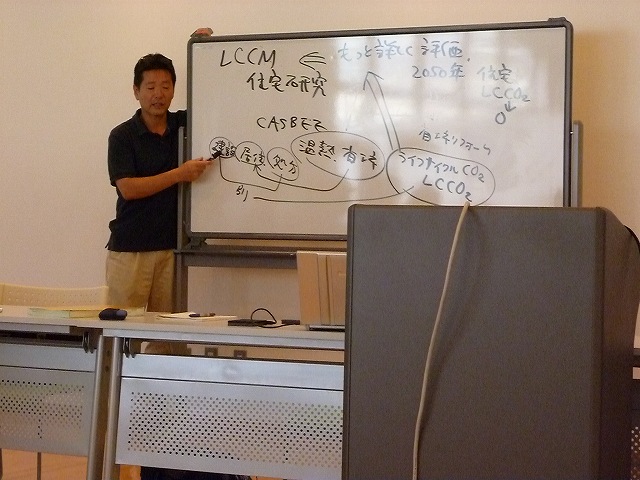 LCCM ⇐ もっと詳しく評価
住宅研究
2050年 住宅
LCCO2
↓
0
CASBEE
建設 居住 処分 温熱 省エネ
省エネリフォーム
ライフサイクルCO2
LCCO2